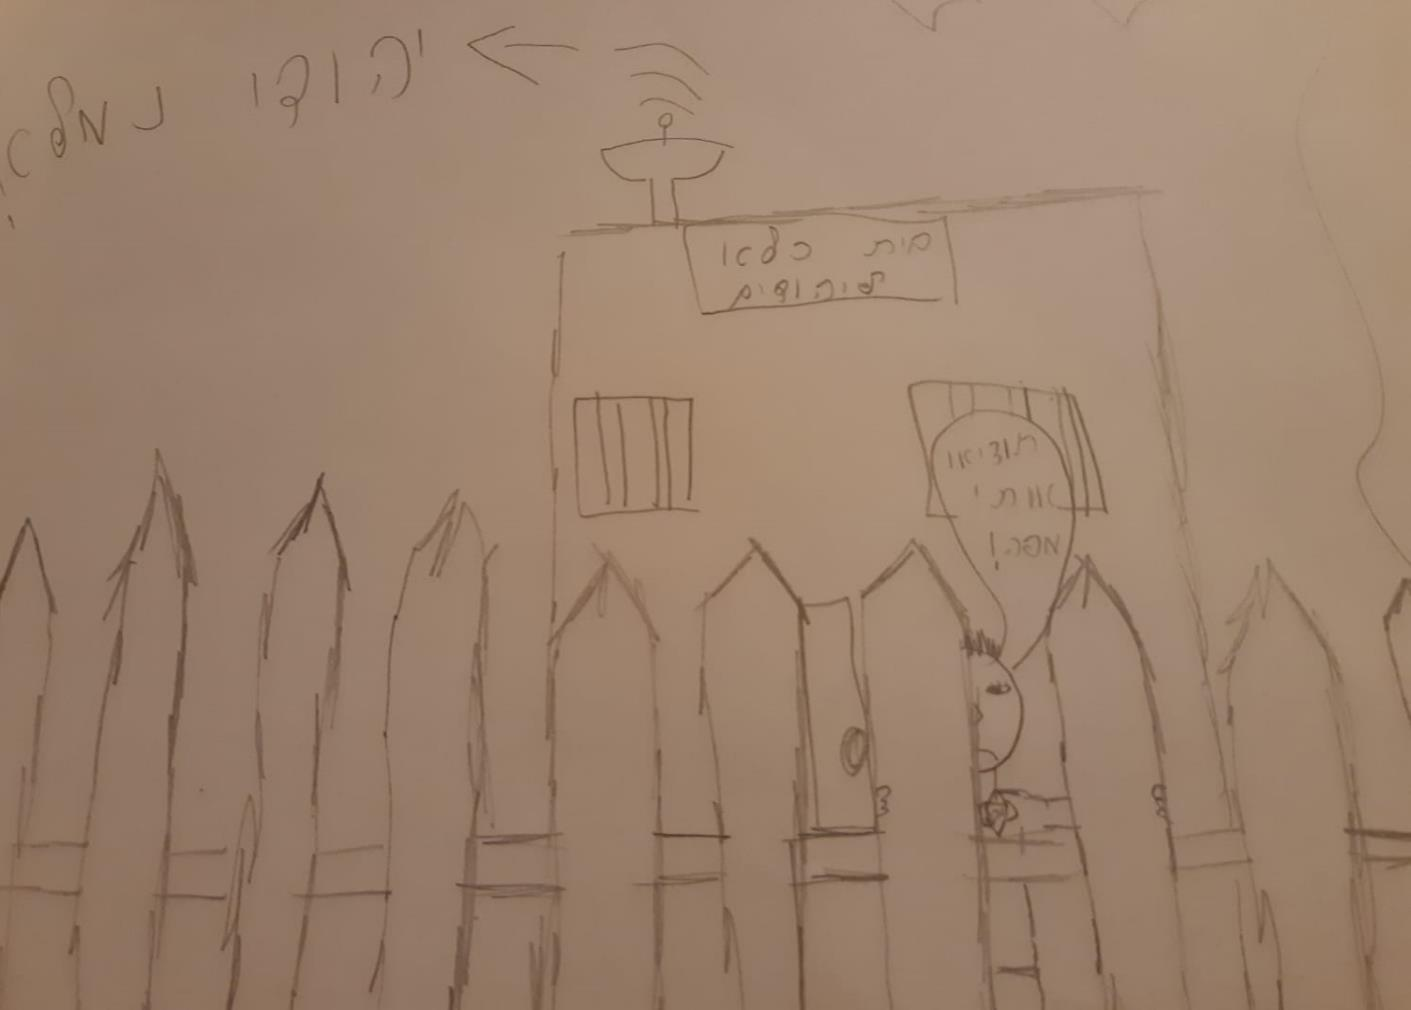 יהודי
בית כלא
ליהודים
תוציאו
אותי
מפה!